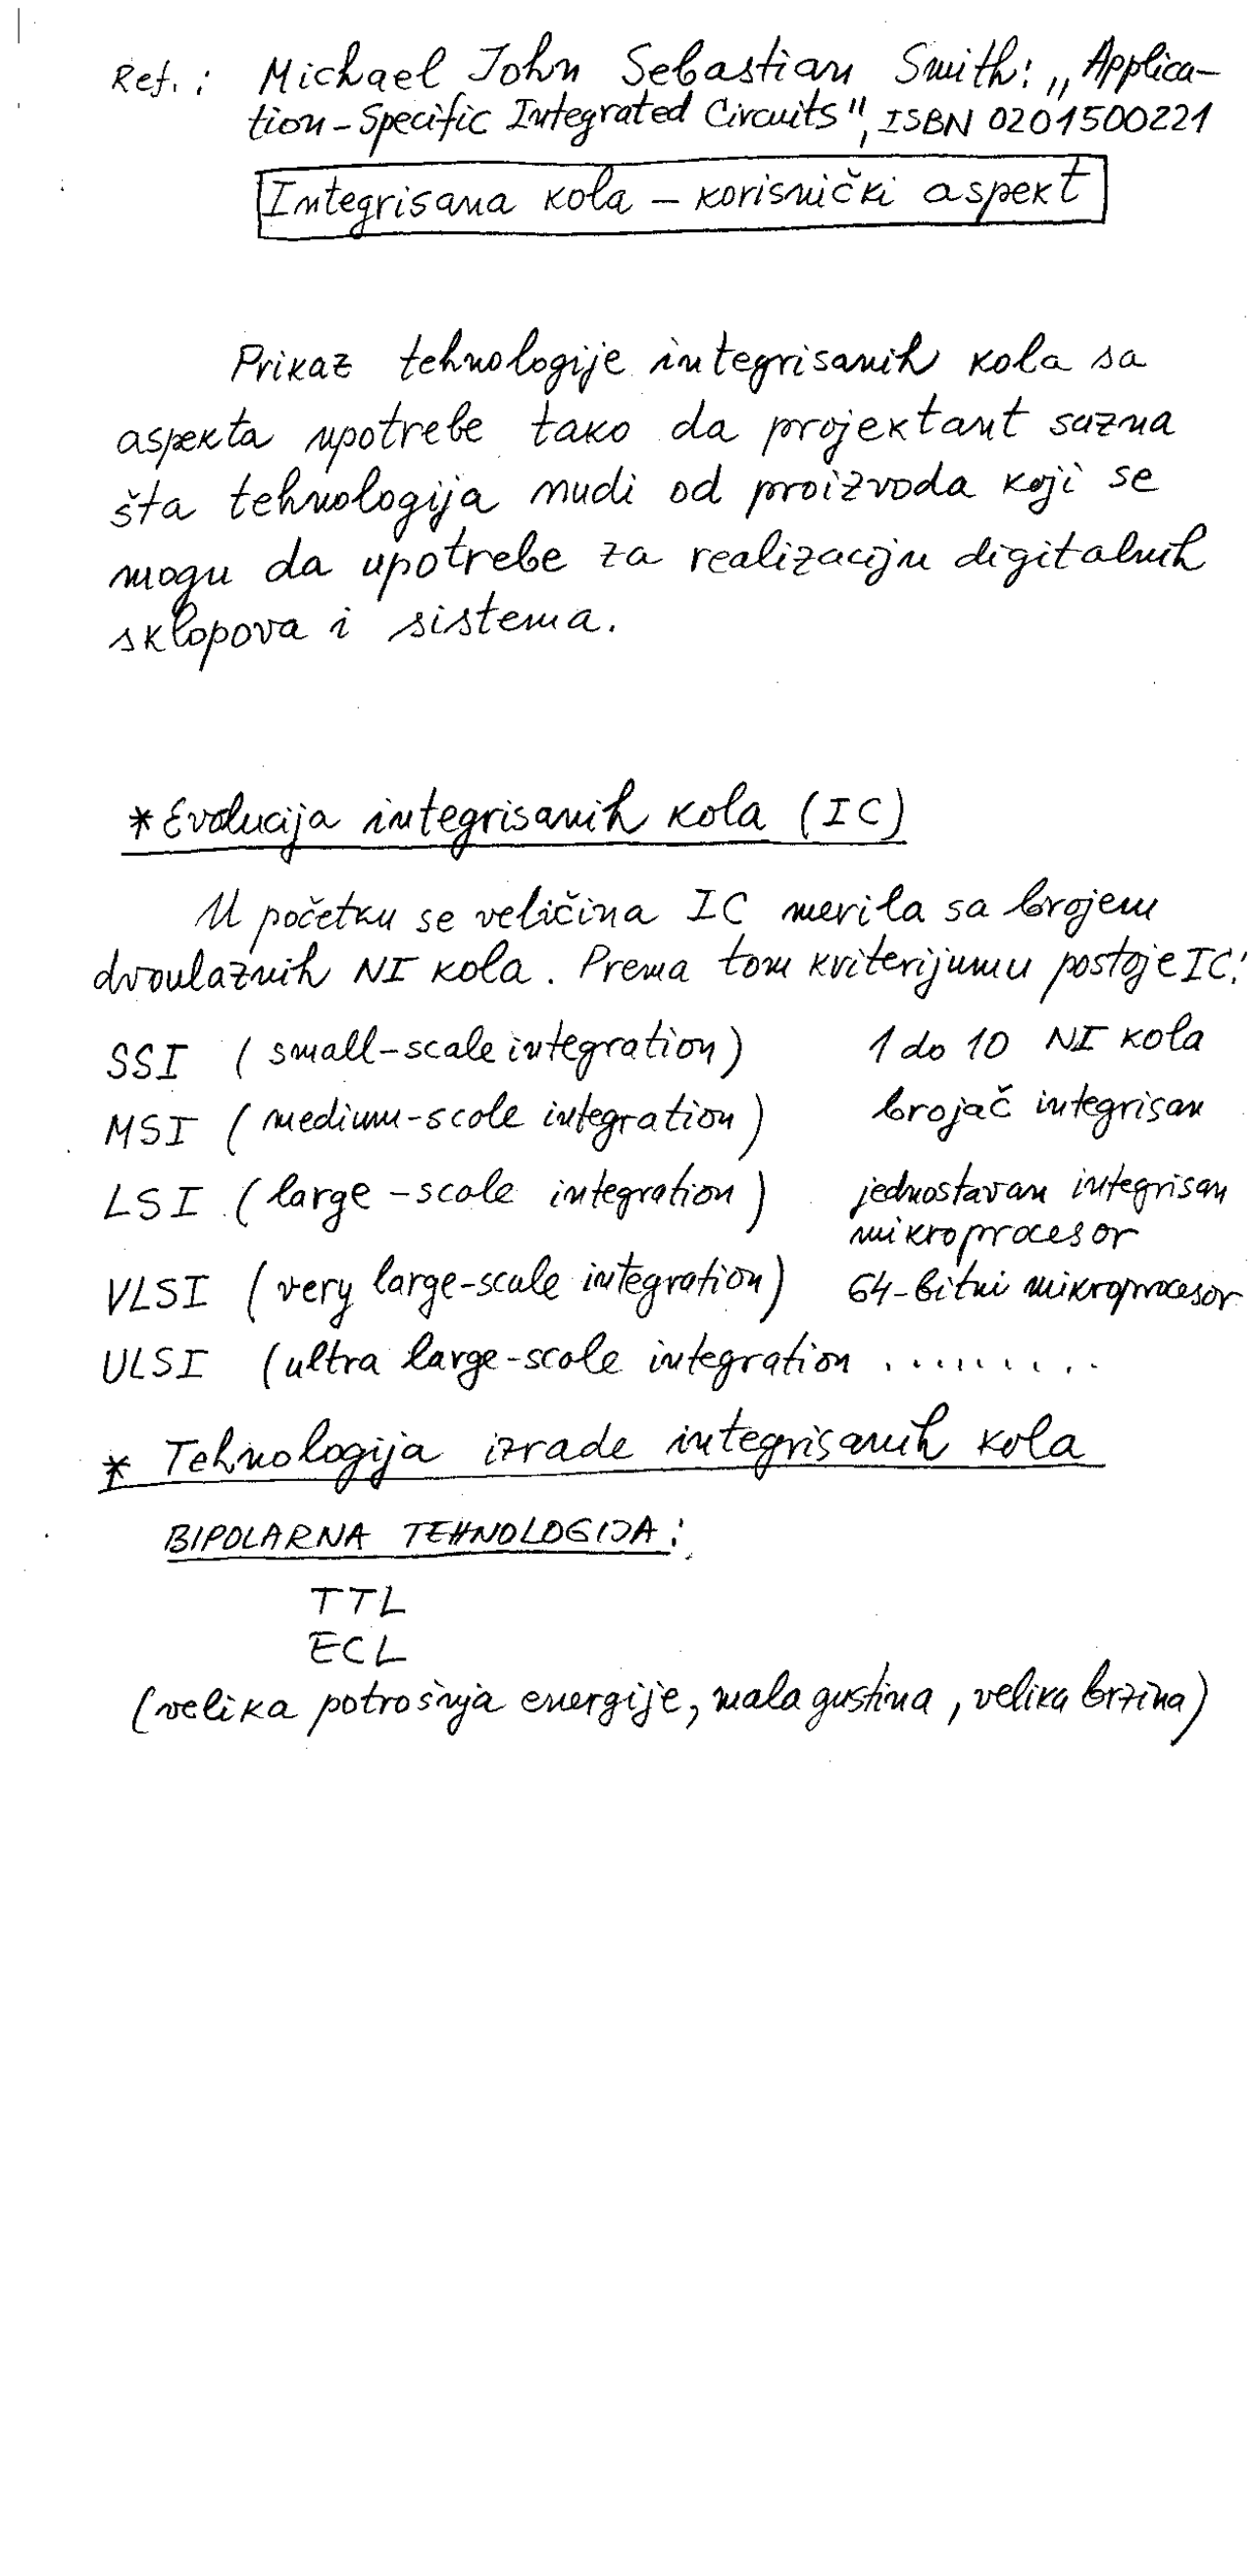 Ref. : Michael John Sebastian Smith: „Applica-
tion-Specific Integrated Circuits", ISBN 0201500221
Integrisana kola – korisnički aspekt
Prikaz tehnologije integrisanih kola sa
aspekta upotrebe tako da projektant sazna
šta tehnologija nudi od proizvoda koji se
mogu da upotrebe za realizaciju digitalnih
sklopova i sistema.
* Evolucija integrisanih kola (IC)
U početku se veličina IC merila sa brojem
dvoulaznih NI kola. Prema tom kriterijumu postoje IC:
SSI (small-scale integration) 1 do 10 NI kola
MSI (medium-scale integration) brojač integrisan
LSI (large-scale integration) jednostavan integrisan
mikroprocesor
VLSI (very large-scale integration) 64-bitni mikroprocesor
ULSI (ultra large-scale integration .........
* Tehnologija izrade integrisanih kola
BIPOLARNA TEHNOLOGIJA:
TTL
ECL
(velika potrošnja energije, mala gustina, velika brzina)